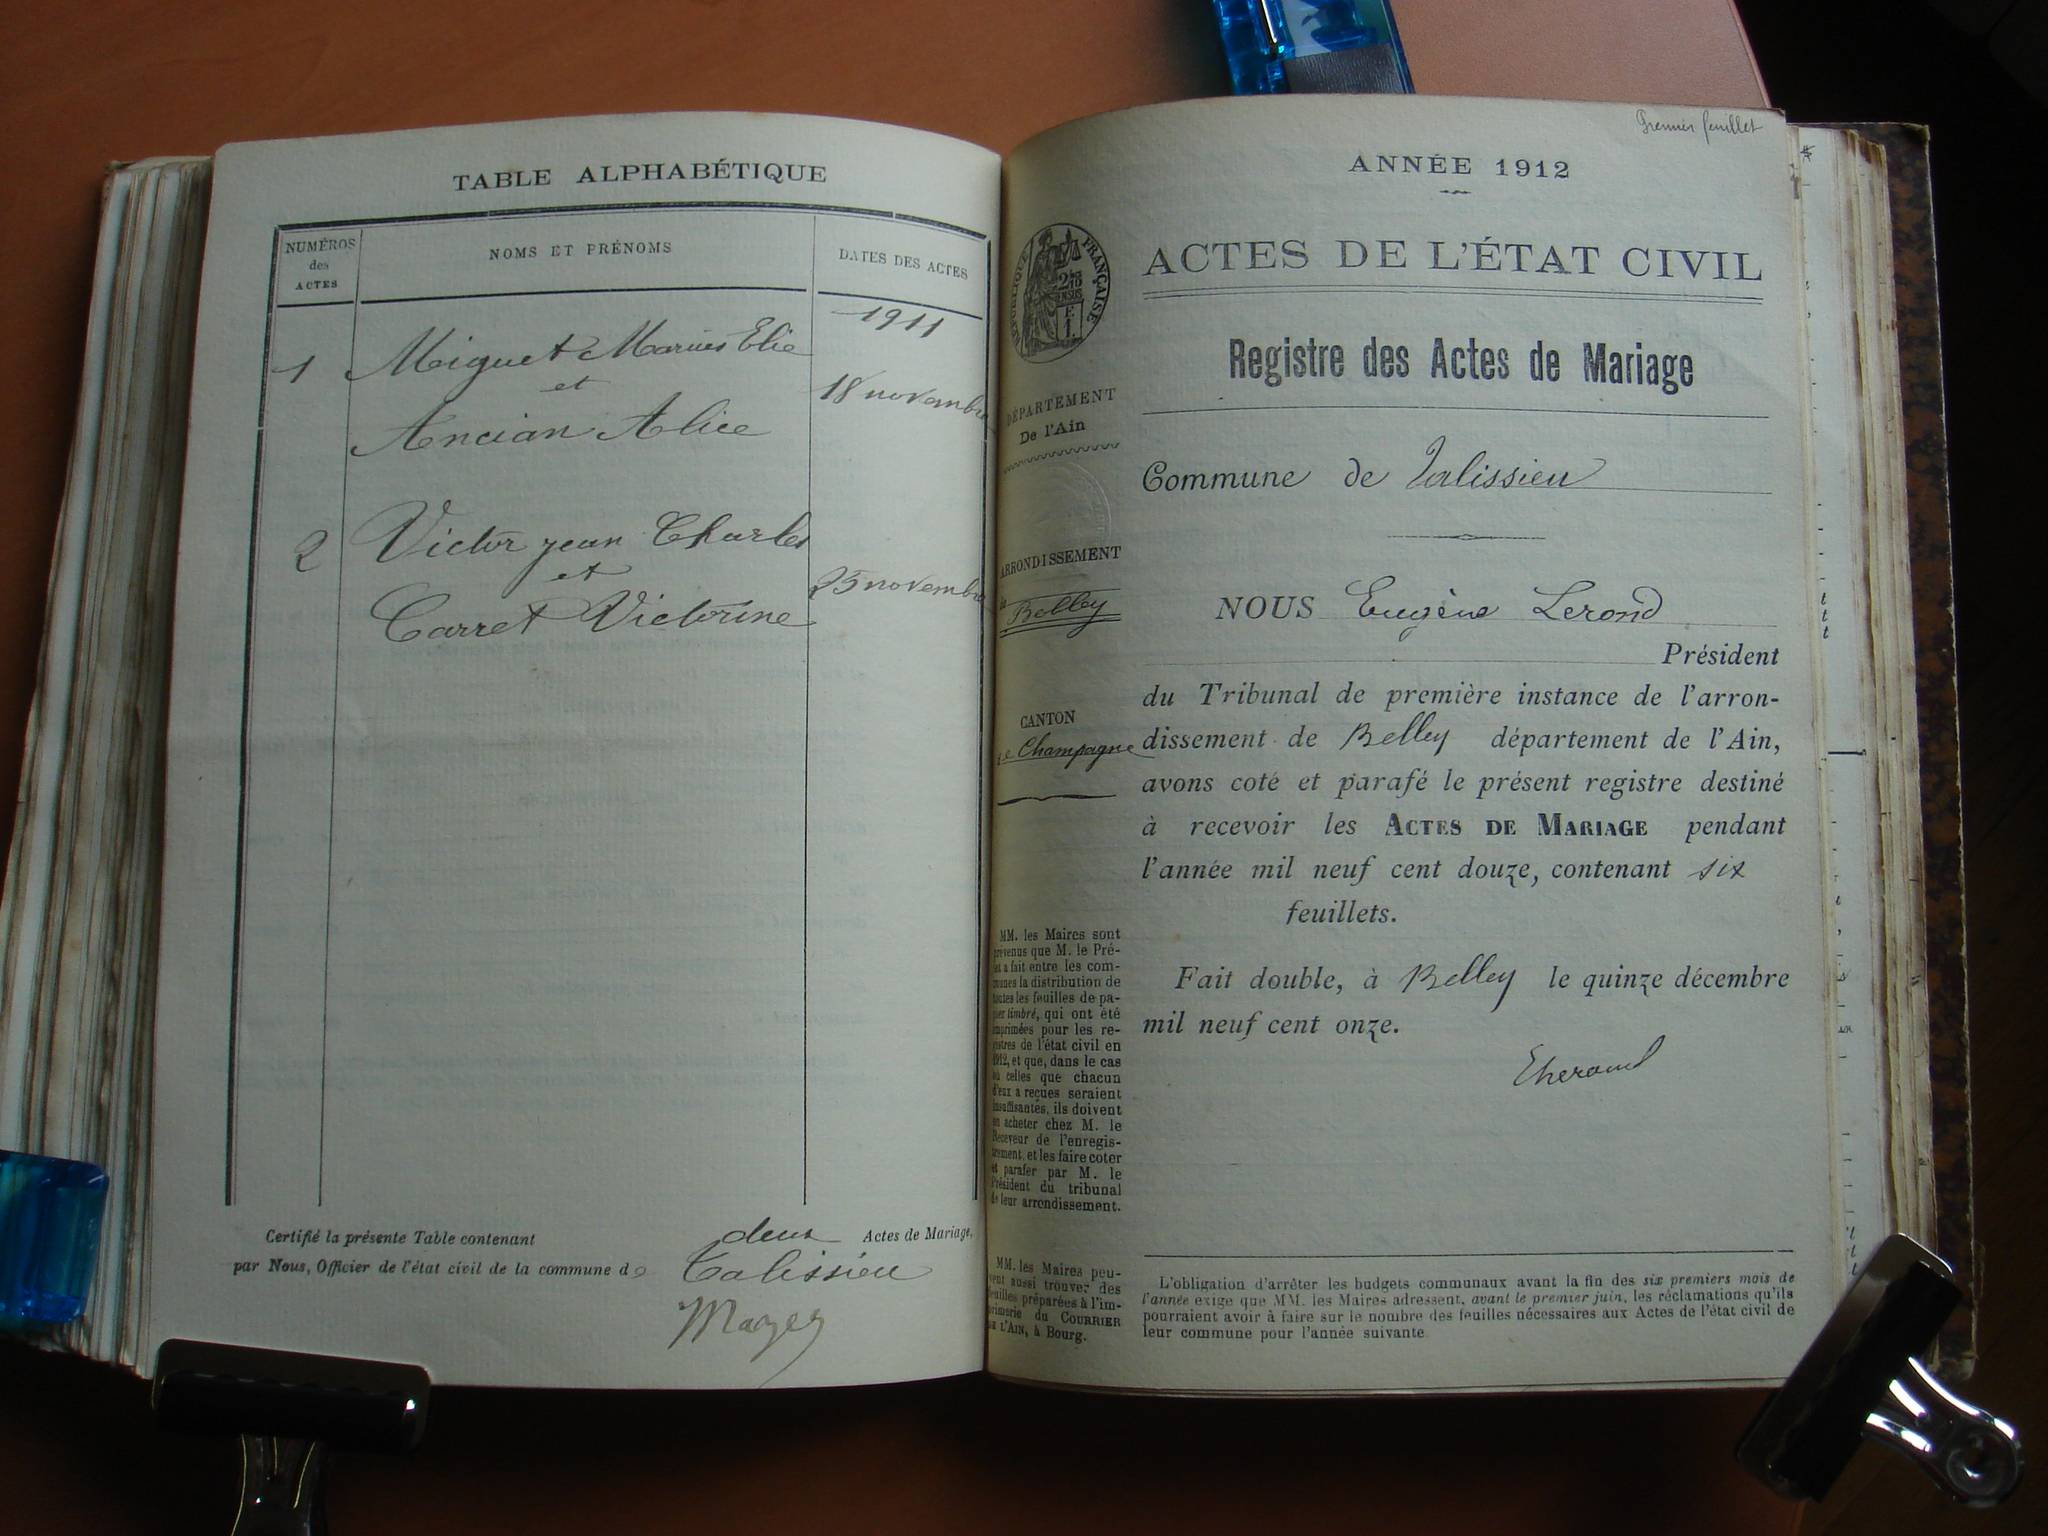 TABLE ALPHABÉTIQUE
NUMÉROS
des
ACTES
NOMS ET PRÉNOMS
DATES DES ACTES
1911
1
Miguet Marius Elie
et
Ancian Alice
18 novembre
2
Victor jean Charles
et
Carret Victorine
25 novembre
Certifié la présente Table contenant deux Actes de Mariage,
par Nous, Officier de l'état civil de la commune de Talissieu
Premier feuillet
ANNÉE 1912
ACTES DE L'ÉTAT CIVIL
RÉPUBLIQUE FRANÇAISE
Registre des Actes de Mariage
DÉPARTEMENT
De l'Ain
Commune de Talissieu
ARRONDISSEMENT
de
Belley
NOUS Eugène Lerond
Président
du Tribunal de première instance de l'arron-
CANTON
de Champagne
dissement de Belley département de l'Ain,
avons coté et parafé le présent registre destiné
à recevoir les ACTES DE MARIAGE pendant
l'année mil neuf cent douze, contenant six
feuillets.
Fait double, à Belley le quinze décembre
mil neuf cent onze.
MM. les Maires sont
prévenus que M. le Pré-
fet a fait entre les com-
munes la distribution de
toutes les feuilles de pa-
pier timbré, qui ont été
imprimées pour les re-
gistres de l'état civil en
1912, et que, dans le cas
où celles que chacun
d'eux a reçues seraient
insuffisantes, ils doivent
en acheter chez M. le
Receveur de l'enregis-
trement, et les faire coter
et parafer par M. le
Président du tribunal
de leur arrondissement.
MM. les Maires peu-
vent aussi trouver des
feuilles préparées à l'im-
primerie du COURRIER
DE L'AIN, à Bourg.
L'obligation d'arrêter les budgets communaux avant la fin des six premiers mois de
l'année exige que MM. les Maires adressent, avant le premier juin, les réclamations qu'ils
pourraient avoir à faire sur le nombre des feuilles nécessaires aux Actes de l'état civil de
leur commune pour l'année suivante